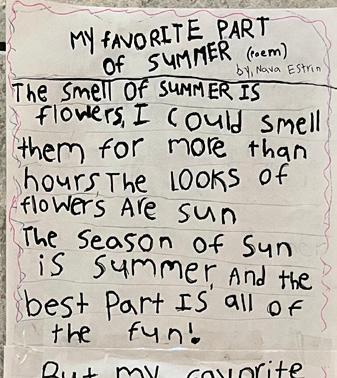 MY FAVORITE PART
OF SUMMER (Poem)
by, Nava Estrin
The Smell OF SUMMER IS
flowers, I could smell
them for more than
hours, The LOOKS of
flowers Are sun
The season of sun
is summer, And the
best Part IS all of
the fun!
But my favorite